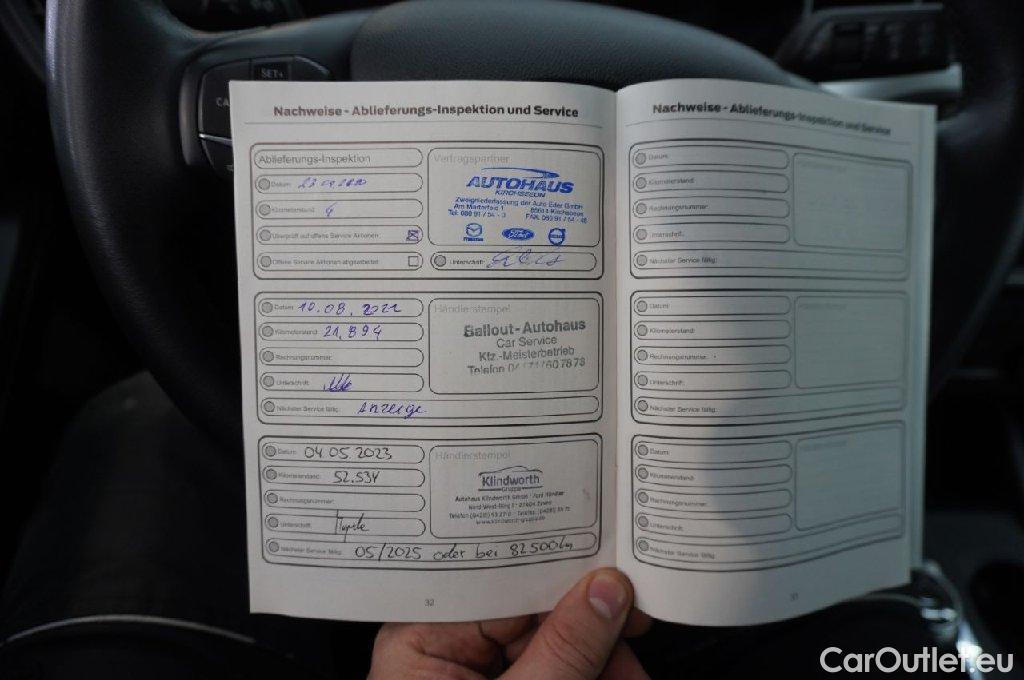 SET+
CA
Nachweise - Ablieferungs-Inspektion und Service
Ablieferungs-Inspektion
Datum:
Kilometerstand:
Überprüft auf offene Service Aktionen:
Offene Service Aktionen abgearbeitet:
Vertragspartner
AUTOHAUS
KIRCHSEEON
Zweigniederlassung der Auto Eder GmbH
Am Marterfeld 1
85614 Kirchseeon
Tel: 080 91 / 54 - 3
FAX 080 91 / 54 - 46
mazda
Ford
VOLVO
Unterschrift:
Datum: 10.08.2021
Kilometerstand: 21.894
Rechnungsnummer:
Unterschrift:
Nächster Service fällig: Anzeige
Händlerstempel
Ballout-Autohaus
Car Service
Kfz.-Meisterbetrieb
Telefon
Datum: 04.05.2023
Kilometerstand: 52.534
Rechnungsnummer:
Unterschrift:
Nächster Service fällig: 05/2025 oder bei 82500km
Händlerstempel
Klindworth
Gruppe
Autohaus Klindworth GmbH
www.klindworth-gruppe.de
32
Nachweise - Ablieferungs-Inspektion und Service
Datum:
Kilometerstand:
Rechnungsnummer:
Unterschrift:
Nächster Service fällig:
Datum:
Kilometerstand:
Rechnungsnummer:
Unterschrift:
Nächster Service fällig:
Datum:
Kilometerstand:
Rechnungsnummer:
Unterschrift:
Nächster Service fällig:
CarOutlet.eu